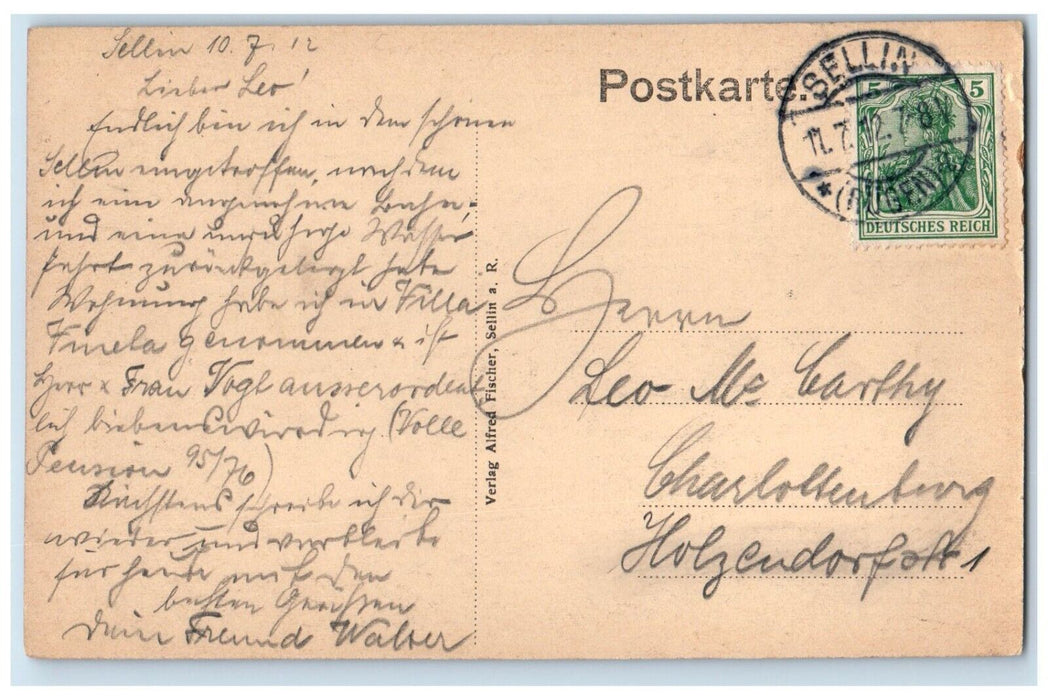 Sellin 10.7.12
Lieber Leo!
Endlich bin ich in dem schönen
Sellin eingetroffen, nachdem
ich eine angenehme Bahn-
und eine unruhige Wasser
fahrt zurückgelegt habe
Wohnung habe ich in Villa
genommen & ist
Herr & Frau Vogl ausserordent
lich liebenswürdig (Volle
Pension 95/76)
Nächstens schreibe ich dir
wieder und verbleibe
für heute mit den
besten Grüssen
Dein Freund Walter
Verlag Alfred Fischer, Sellin a. R.
Postkarte.
SELLIN
11.7.12.7-8V
*(RÜGEN)a
5 5
DEUTSCHES REICH
Herrn
Leo Mc Carthy
Charlottenburg
Holzendorfstr 1